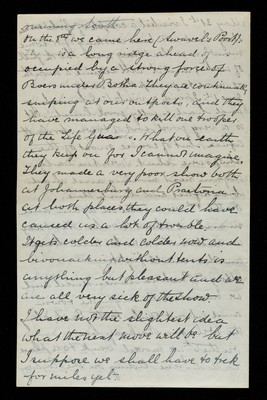 running South.
On the 8th we came here (Swavels Poort).
is a long ridge ahead
occupied by a strong force of
Boers under Botha. They are continually
sniping at our outposts, and they
have managed to kill one trooper
of the Life Guards. What on earth
they keep on for I cannot imagine,
They made a very poor show both
at Johannesburg and Praetoria
at both places they could have
caused us a lot of trouble.
It gets colder and colder now and
bivouacking without tents is
anything but pleasant and we
are all very sick of the show
I have not the slightest idea
what the next move will be but
I suppose we shall have to trek
for miles yet.